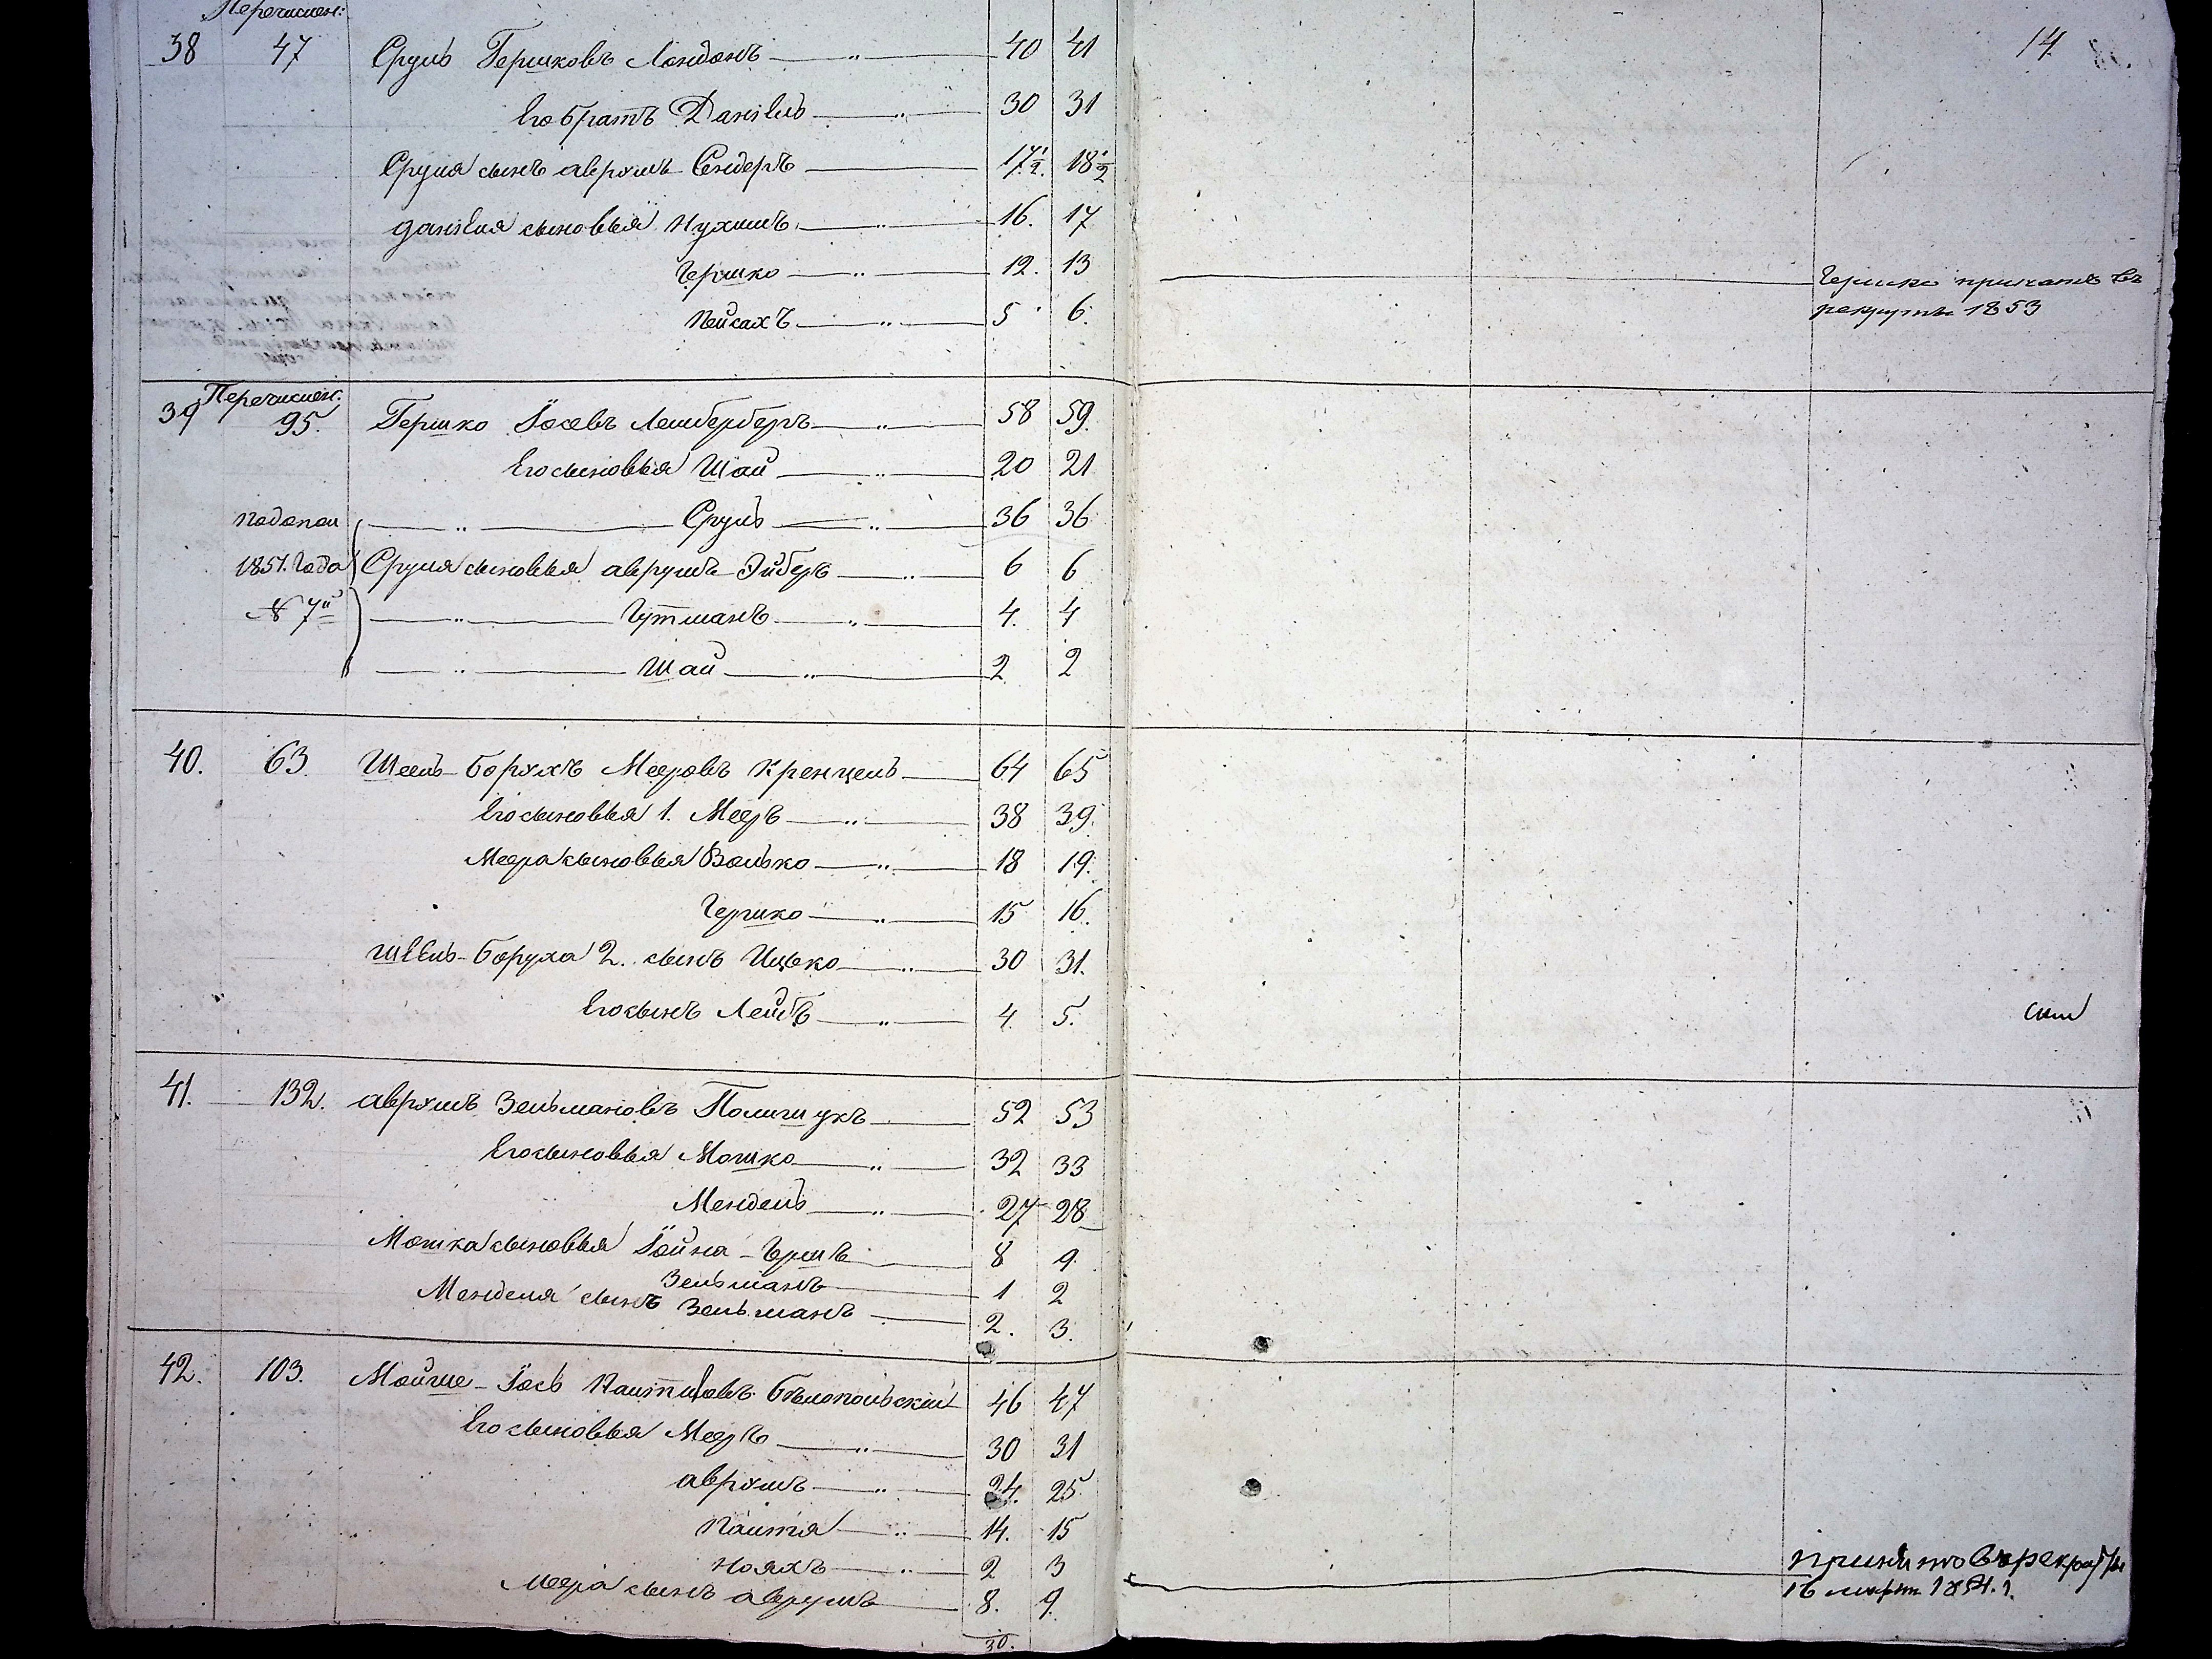 Перечислен:
14
38 47 Сруль Гершковъ Лондонъ — " — 40 41
Его братъ Даніель — " — 30 31
Сруля сынъ аврумъ-Сендеръ — 17½. 18½
даніеля сыновья Нухимъ — " — 16. 17
Гершко — " — 12. 13
Гершко принятъ въ
рекруты 1853
Пейсахъ — " — 5 6.
Перечислен:
39 95. Гершко Іосевъ Лемберберъ — " — 58 59.
Его сыновья Шая — " — 20 21
— " — Сруль — " — 36 36
1851. Года Сруля сыновья аврумъ-Эйберъ — " — 6 6
№ 7й — " — Гутманъ — " — 4. 4
— " — Шая — " — 2 2
40. 63. Шеель-Борухъ Мееровъ Кренцель — 64 65
Его сыновья 1. Мееръ — " — 38 39.
Меера сыновья Волько — " — 18 19.
Гершко — " — 15 16.
Шеель-Боруха 2. сынъ Ицько — " — 30 31.
Его сынъ Лейбъ — " — 4. 5.
41. 132. аврумъ Зельмановъ Полищукъ — 52 53
Его сыновья Мошко — " — 32 33
Мендель — " — 27 28
Мошка сыновья Іойна-Гершъ — 8 9.
Зельманъ — 1 2
Менделя сынъ Зельманъ — 2. 3.
42. 103. Мойше-Іось Бѣлопольскій 46 47
Его сыновья Мееръ — " — 30 31
аврумъ — " — 24. 25
Пантя — " — 14. 15
Нояхъ — " — 2 3
принято въ рекруты
16 март 1854.г.
Меера сынъ аврумъ — 8. 9.
30.